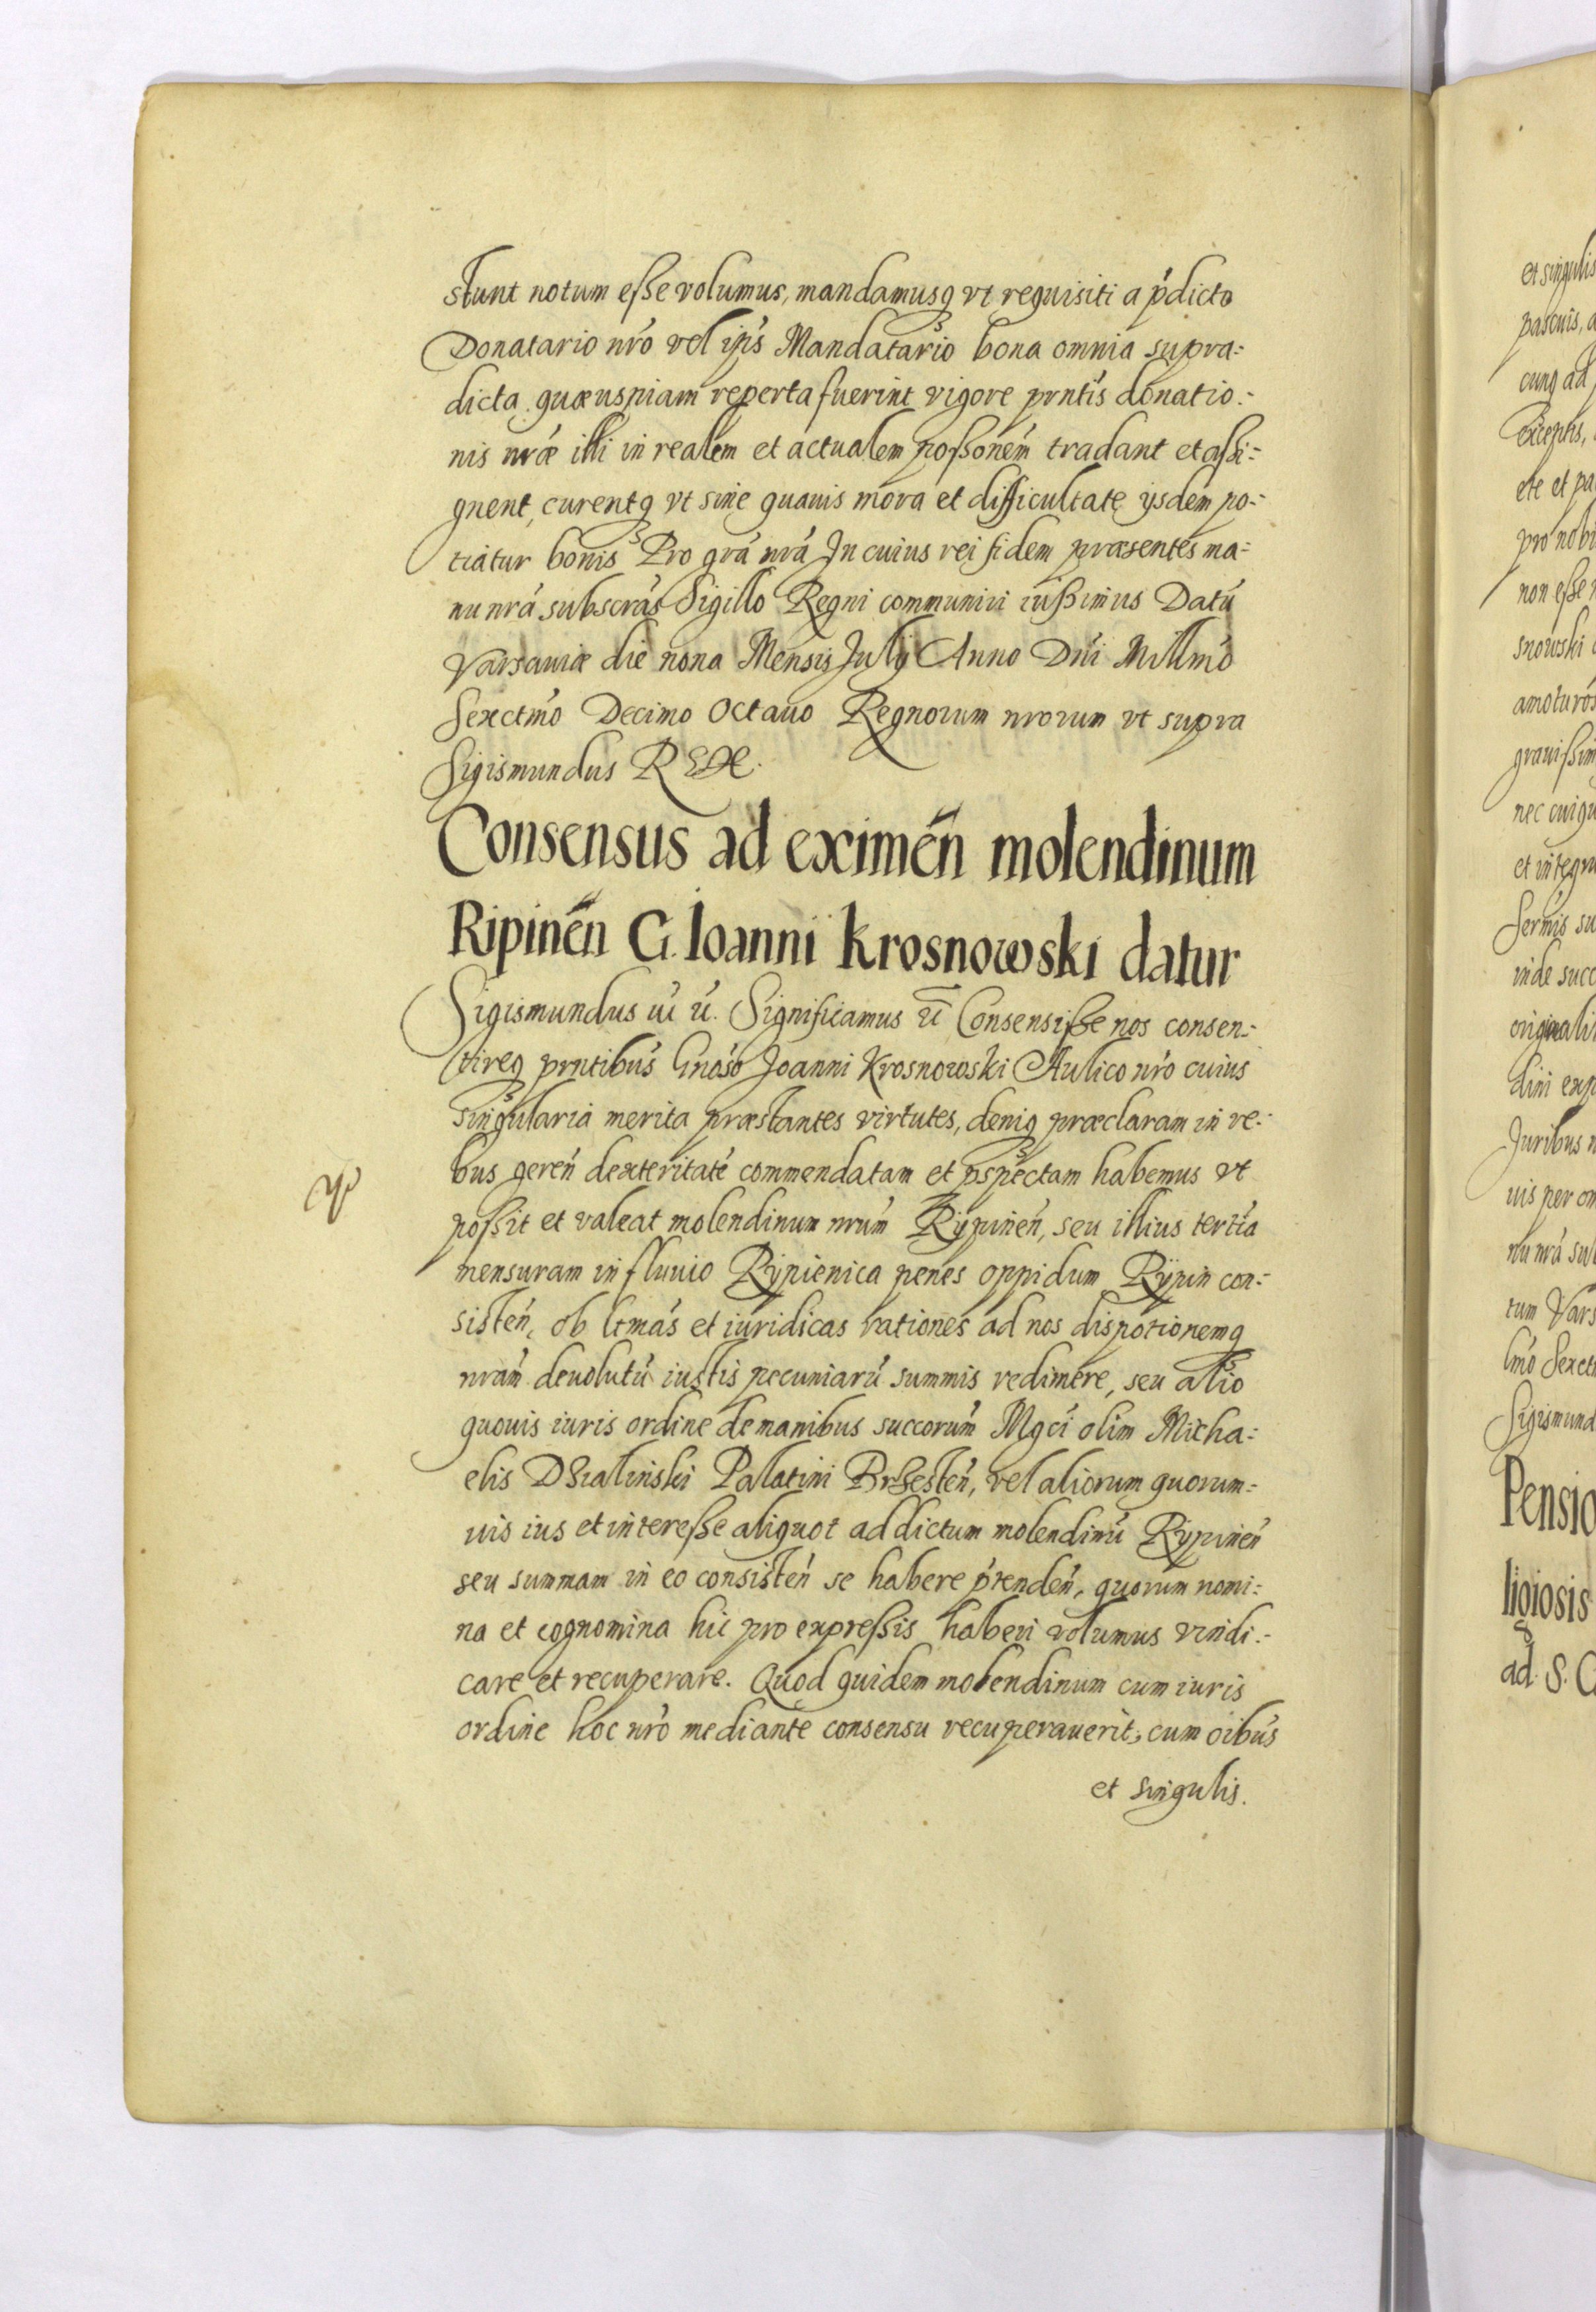 stunt notum esse volumus, mandamusq vt requisiti a pdicto
Donatario nro vel ips Mandatario bona omnia supra=
dicta quæuspiam reperta fuerint vigore prntis donatio=
nis nræ illi in realem et actualem possonem tradant et assi=
gnent, curentq vt sine quauis mora et difficultate ijsdem po=
tiatur bonis Pro gra nra In cuius rei fidem præsentes ma=
nu nra subscras Sigillo Regni communiri iussimus Datu
Varsauiæ die nona Mensis Julij Anno Dni Millmo
Sexctmo Decimo Octauo Regnorum nrorum vt supra
Sigismundus REX.
Consensus ad eximen molendinum
Ripinen G. Ioanni Krosnowski datur
Sigismundus ui u. Significamus u Consensisse nos consen=
tireq prntibus Gnoso Joanni Krosnowski Aulico nro cuius
singularia merita præstantes virtutes, deniq præclaram in re=
bus geren dexteritate commendatam et pspectam habemus vt
possit et valeat molendinum nrum Rypinen, seu illius tertia
mensuram in fluuio Rypienica penes oppidum Rypin con=
sisten, ob ltmas et iuridicas rationes ad nos dispotionemq
nram deuolutu iustis pecuniaru summis redimere, seu alio
quouis iuris ordine de manibus succorum Mgci olim Micha=
elis Dzialinski Palatini Brzesten, vel aliorum quorum=
uis ius et interesse aliquot ad dictum molendinu Rypinen
seu summam in eo consisten se habere ptenden, quorum nomi=
na et cognomina hic pro expressis haberi volumus vindi=
care et recuperare. Quod quidem molendinum cum iuris
ordine hoc nro mediante consensu recuperauerit, cum oibus
et singulis.
et singulis
pascuis, a
cunq ad
exceptis,
ete et pa
pro nobi
non esse
snowski
amoturos
grauissim
nec cuiqu
et integru
Sermis su
inde succ
originali
dini exp
Juribus n
uis per om
nu nra sub
tum Vars
lmo Sexct
Sigismund
Pensio
ligiosis
ad S. C